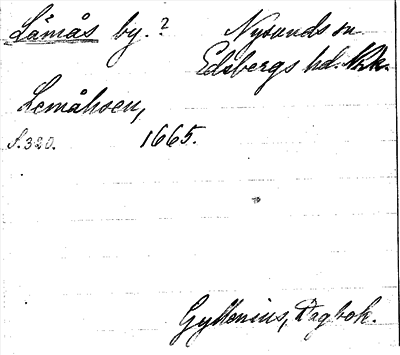 Låmås by. ? Nysunds sn
Edsbergs hd. Nrk.
Lemåhsen,
s. 320. 1665.
Gyllenius, Dagbok.